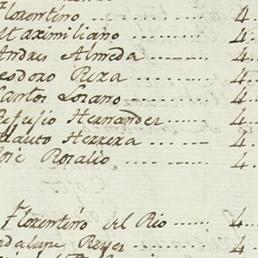 Florentino ........ 4.
Maximiliano ...... 4.
Andres Almeda ....... 4.
Teodoro Reza ....... 4.
Carlos Lozano ....... 4.
Refugio Hernandez ...... 4.
Herrera ...... 4.
José Rosalio ...... 4.
Florentino del Rio ...... 4.
Guadalupe Reyes ...... 4.